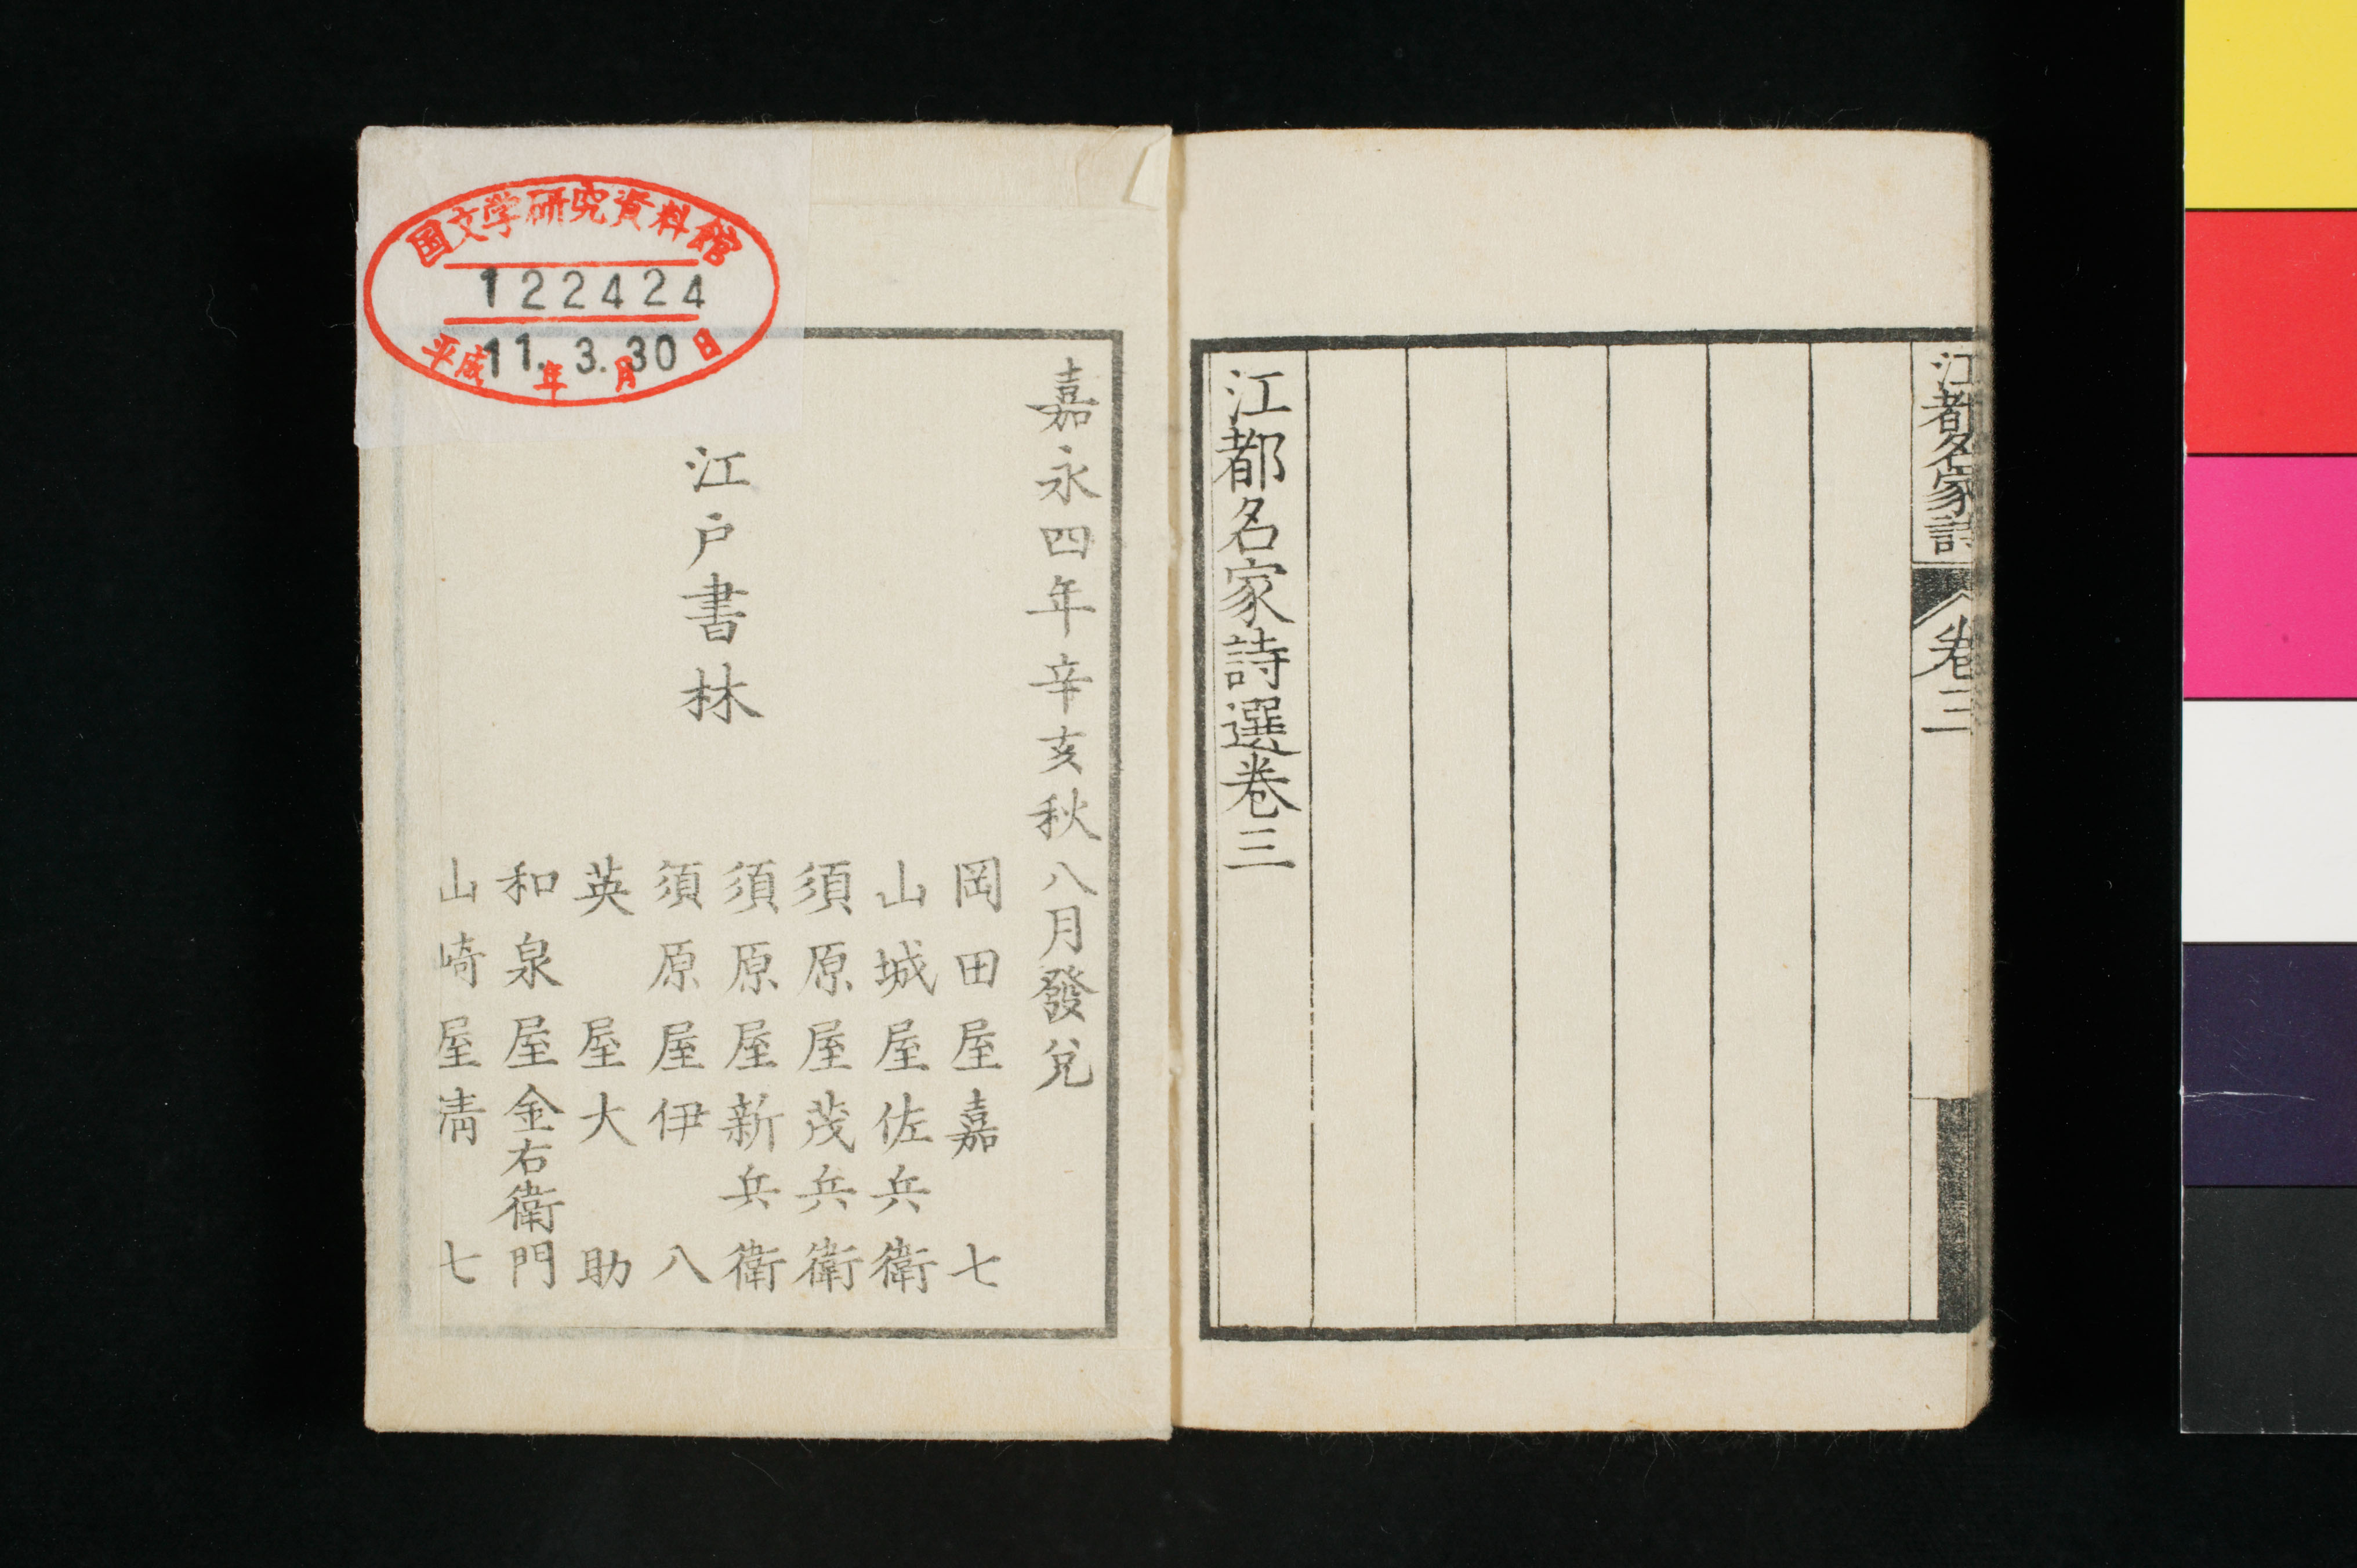 江都名家詩
卷三
江都名家詩選卷三
嘉永四年辛亥秋八月發兌
江戸書林
岡田屋嘉七
山城屋佐兵衛
須原屋茂兵衛
須原屋新兵衛
須原屋伊八
英屋大助
和泉屋金右衛門
山崎屋清七
国文学研究資料館
122424
平成11.年3.月30日